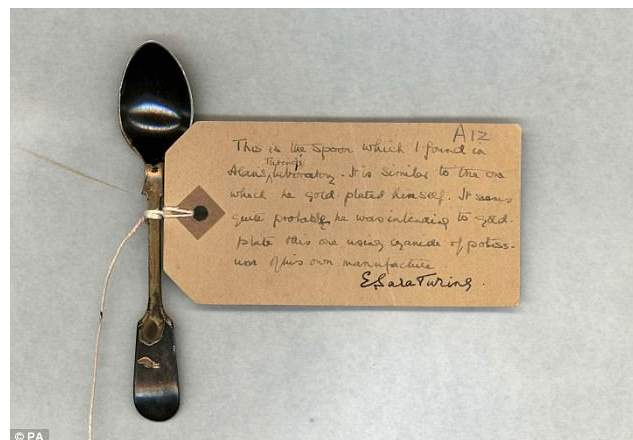 A12
This is the spoon which I found in
Alans Turing's laboratory. It is similar to the one
which he gold plated himself. It seems
quite probable he was intending to gold-
plate this one using cyanide of potass-
ium of his own manufacture
E. Sara Turing.
© PA